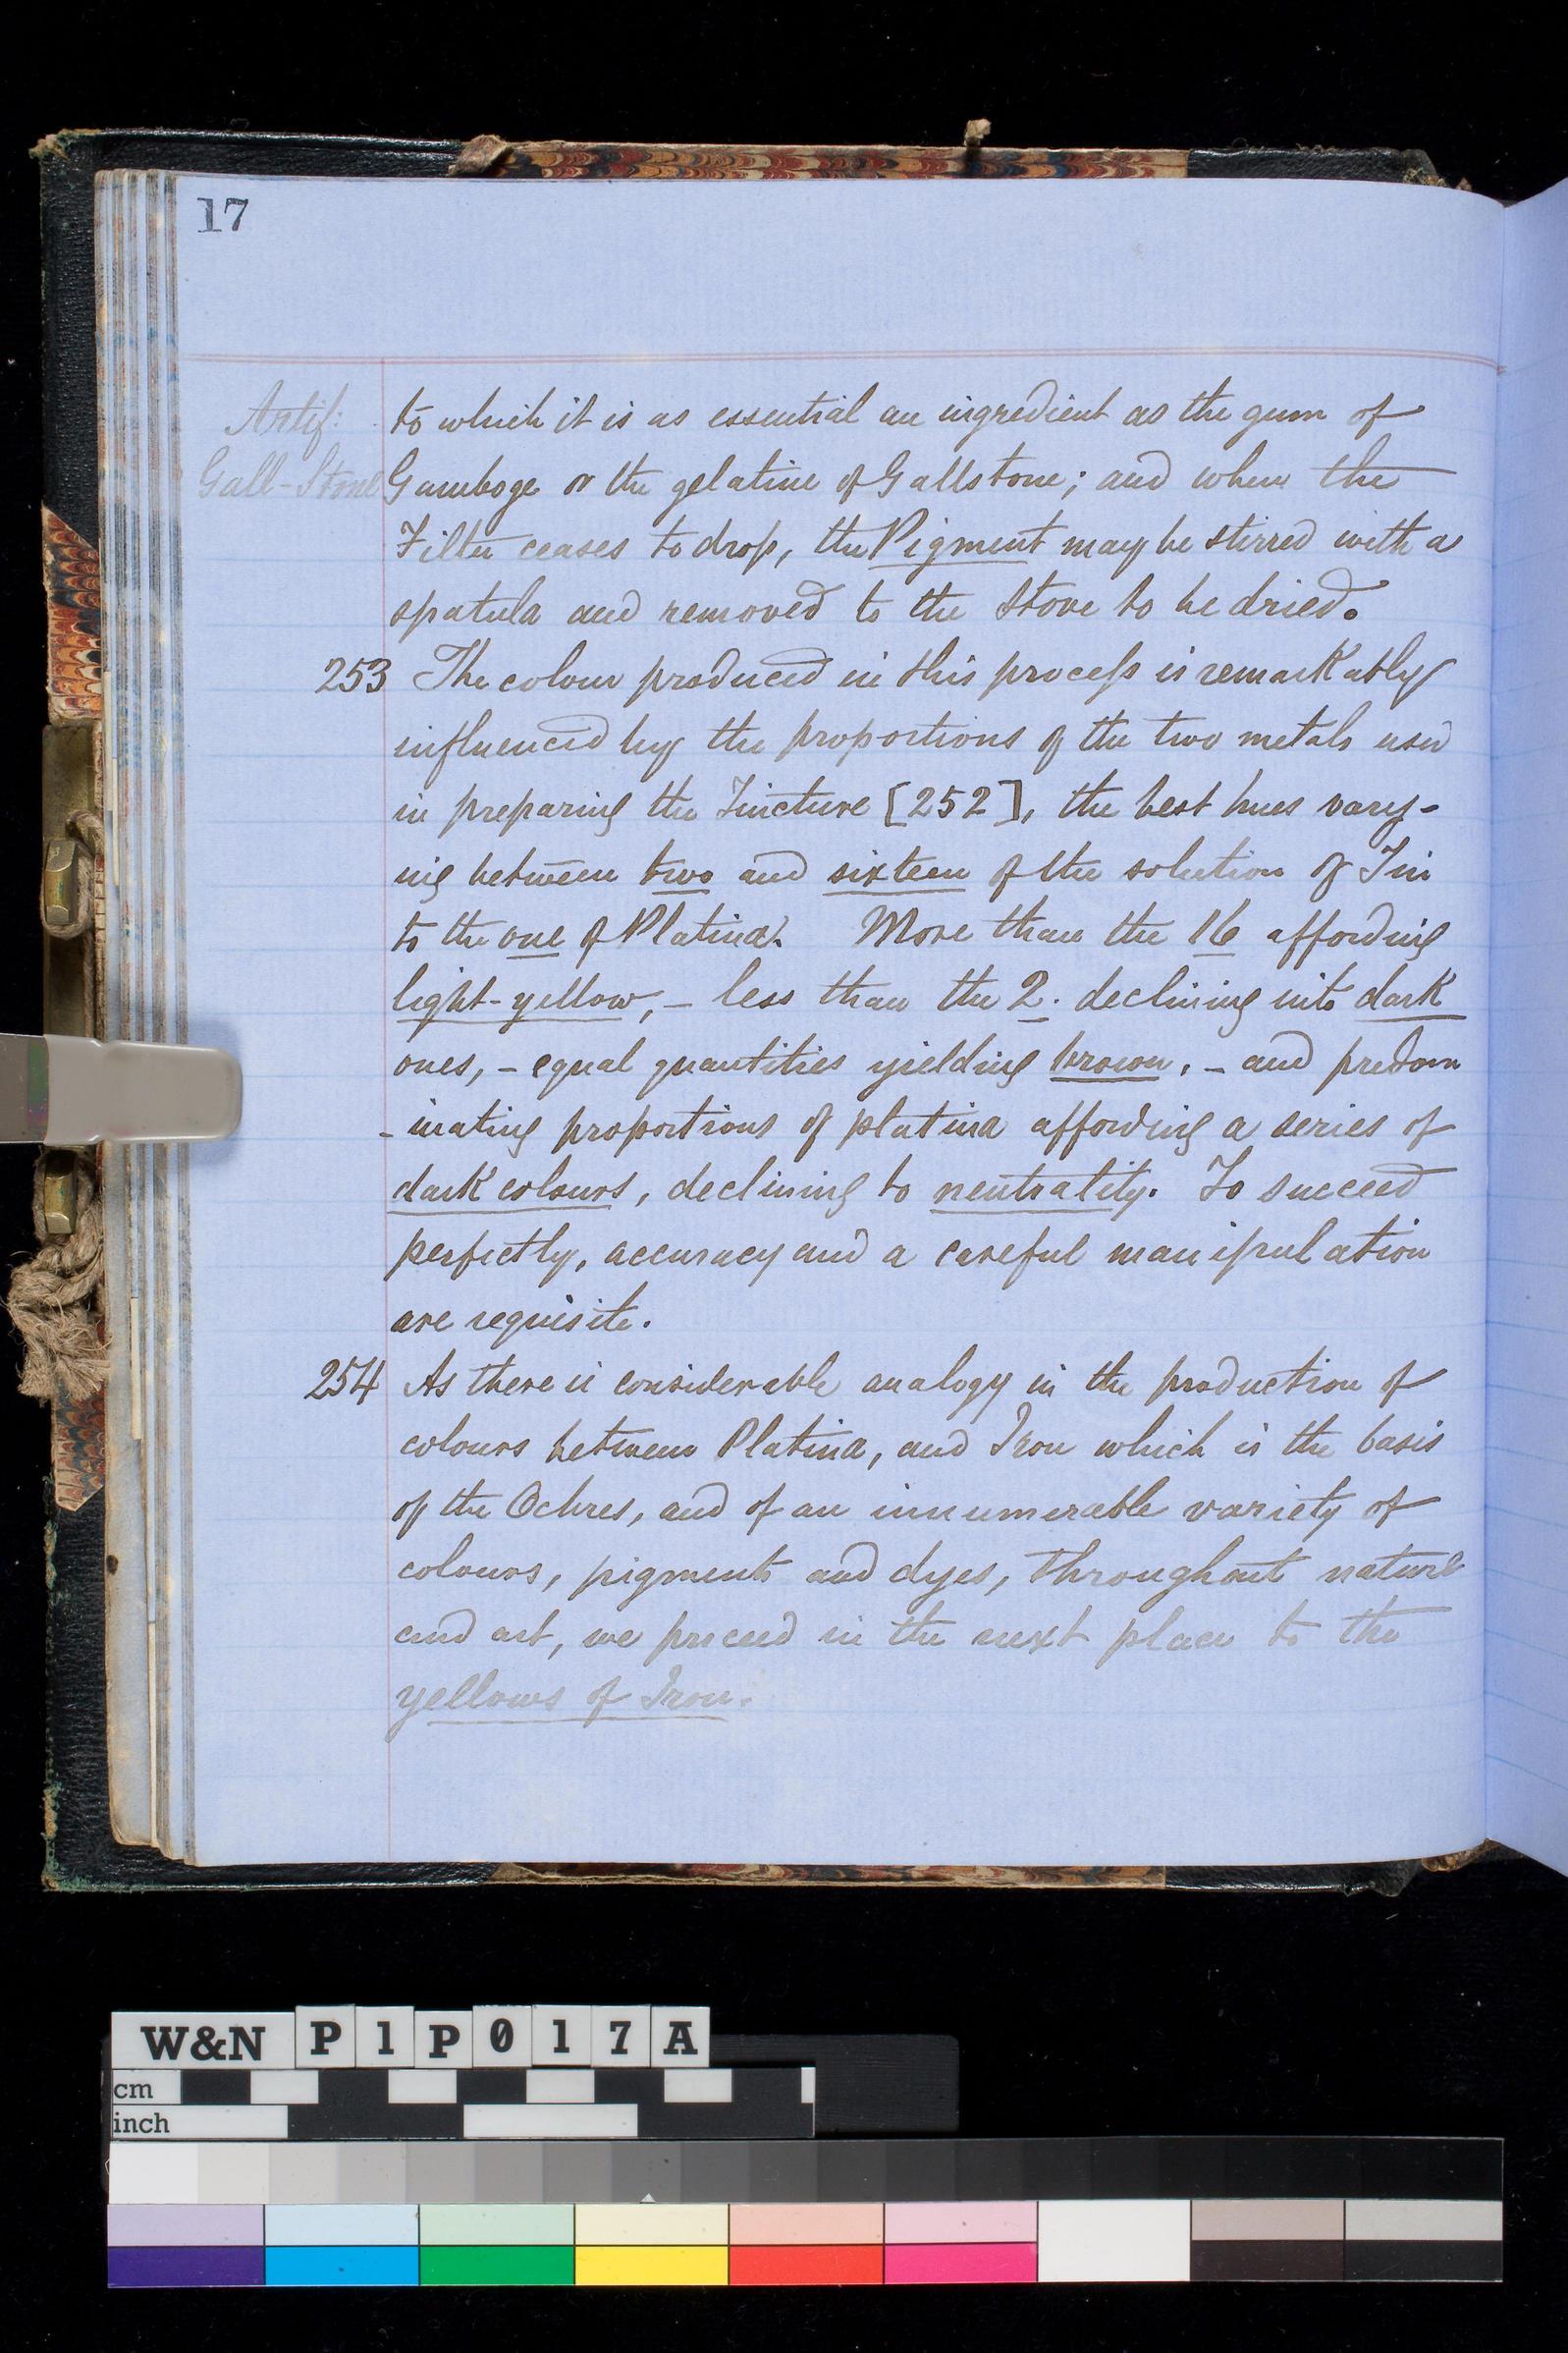 17
Artif:
Gall-Stone
to which it is as essential an ingredient as the gum of
Gamboge or the gelatine of Gallstone; and when the
Filter ceases to drop, the Pigment may be stirred with a
spatula and removed to the Stove to be dried.
253 The colour produced in this process is remarkably
influenced by the proportions of the two metals used
in preparing the Tincture [252], the best hues vary-
ing between two and sixteen of the solution of Tin
to the one of Platina. More than the 16 affording
light-yellow, – less than the 2. declining into dark
ones, – equal quantities yielding brown, – and predom
-inating proportions of platina affording a series of
dark colours, declining to neutrality. To succeed
perfectly, accuracy and a careful manipulation
are requisite.
254 As there is considerable analogy in the production of
colours between Platina, and Iron which is the basis
of the Ochres, and of an innumerable variety of
colours, pigments and dyes, throughout nature
and art, we proceed in the next place to the
yellows of Iron.
W&N P1P017A
cm
inch